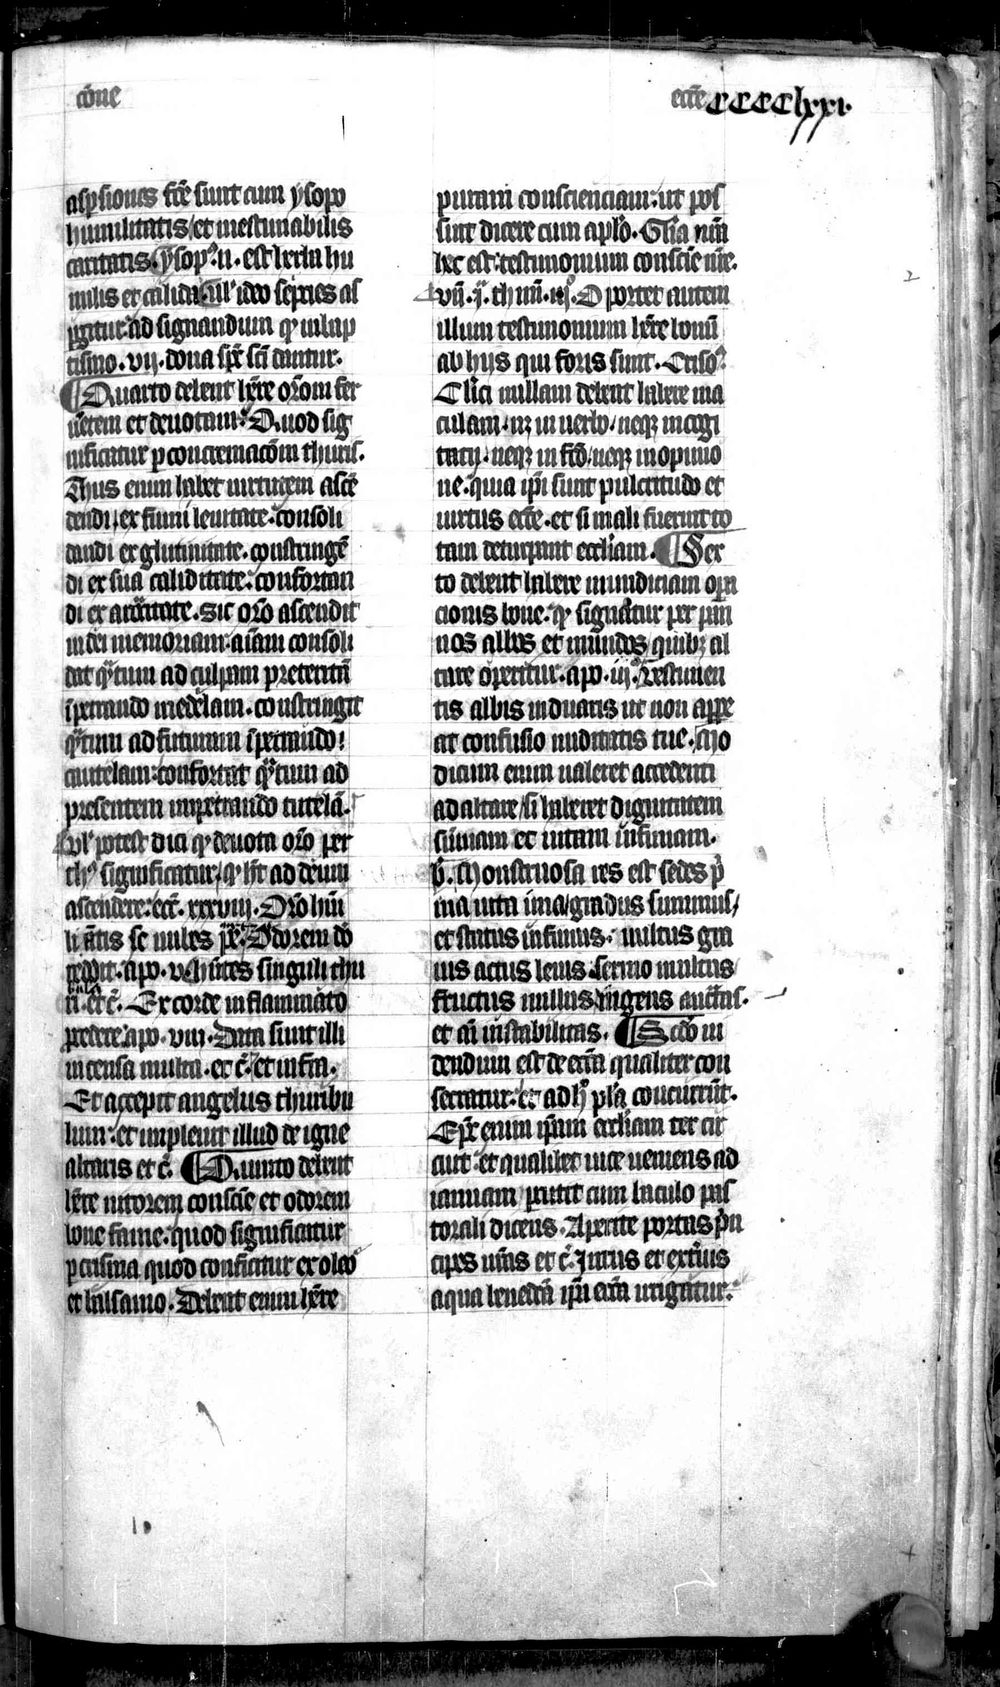 cōne
eccē CCCCLxxı.
asꝑsiones fcē sunt cum ysopo
humilitatis/et inestimabilis
caritatis. ysopꝰ .n. est herba hu
milis et calida. Ul' ideo sepcies as
ꝑgitur ad signandum ꝙ in bap
tismo .vij. dona spc̄ sc̄i dantur.
Quarto debent hr̄e orōm fer
uentem et deuotam. Quod sig
nificatur ꝑ concremacōm thuris.
Thus enim habet uirtutem ascē
dendi ex fumi leuitate. consoli
dandi ex glutinitate. constringē
di ex sua caliditate. confortan
di ex aromaticitate. Sic orō ascendit
in dei memoriam. aīam consoli
dat qͣtum ad culpam preteritā
īpetrando medelam. constringit
qͣtum ad futuram īpetrando
cautelam. confortat qͣtum ad
presentem impetrando tutelā.
Ul' potest dici ꝙ deuota orō per
thꝰ significatur/ꝙ h̄t ad deum
ascendere. ecc̄. xxxviij. Orō humi
li ātis se nubes pe. Odorem dō
reddit. apo. v. hn̄tes singuli thu
ri. etc̄. Ex corde inflammato
predere. apo. viii. Data sunt illi
incensa multa. et c̄. et infra.
Et accepit angelus thuribu
lum. et impleuit illud de igne
altaris et c̄. Quinto debent
hr̄e nitorem consciē et odorem
bone fame. quod significatur
ꝑ crisma quod conficitur ex oleo
et balsamo. Debent enim hr̄e
puram conscienciam. ut pos
sint dicere cum aplō. Glīa nrā
hec est. testimonium consciē nrē.
vij. .j. thim. iij. Oportet autem
illum testimonium hr̄e bonū
ab hijs qui foris sunt. Crisoꝰ
Clīci nullam debent habere ma
culam. nꝫ in uerbo/neqꝫ in cogi
tatu. neqꝫ in fcō/neqꝫ in opinio
ne. quia ip̄i sunt pulcritudo et
uirtus eccē. et si mali fuerint to
tam deturpant eccliam. Sex
to debent habere mundiciam opa
cionis bone. ꝙ signatur per pan
nos albos et mundos/quibꝫ al
tare operitur. apo. iij. Vestimen
tis albis induaris ut non appe
at confusio nuditatis tue. Mo
dicum enim ualeret accedenti
ad altare/si haberet dignitatem
summam et uitam infimam.
b. Monstruosa res est sedes p̄
ma uita ima/gradus summus/
et status infimus. uultus gra
uis actus leuis. sermo multus/
fructus nullus/ingens auctās.
et aī instabilitas. Scdō ui
dendum est de eccīa qualiter con
secratur. Et ad hͦ pl'a concurrūt.
Epc̄ enim ip̄am eccliam ter cir
cuit. et qualibet uice ueniens ad
ianuam ꝑcutit cum baculo pas
torali dicens. Aperite portas p̄n
cipes urās et c̄. Intus et extᷓius
aqua benedcā ip̄a ecc̄a irrigatur.